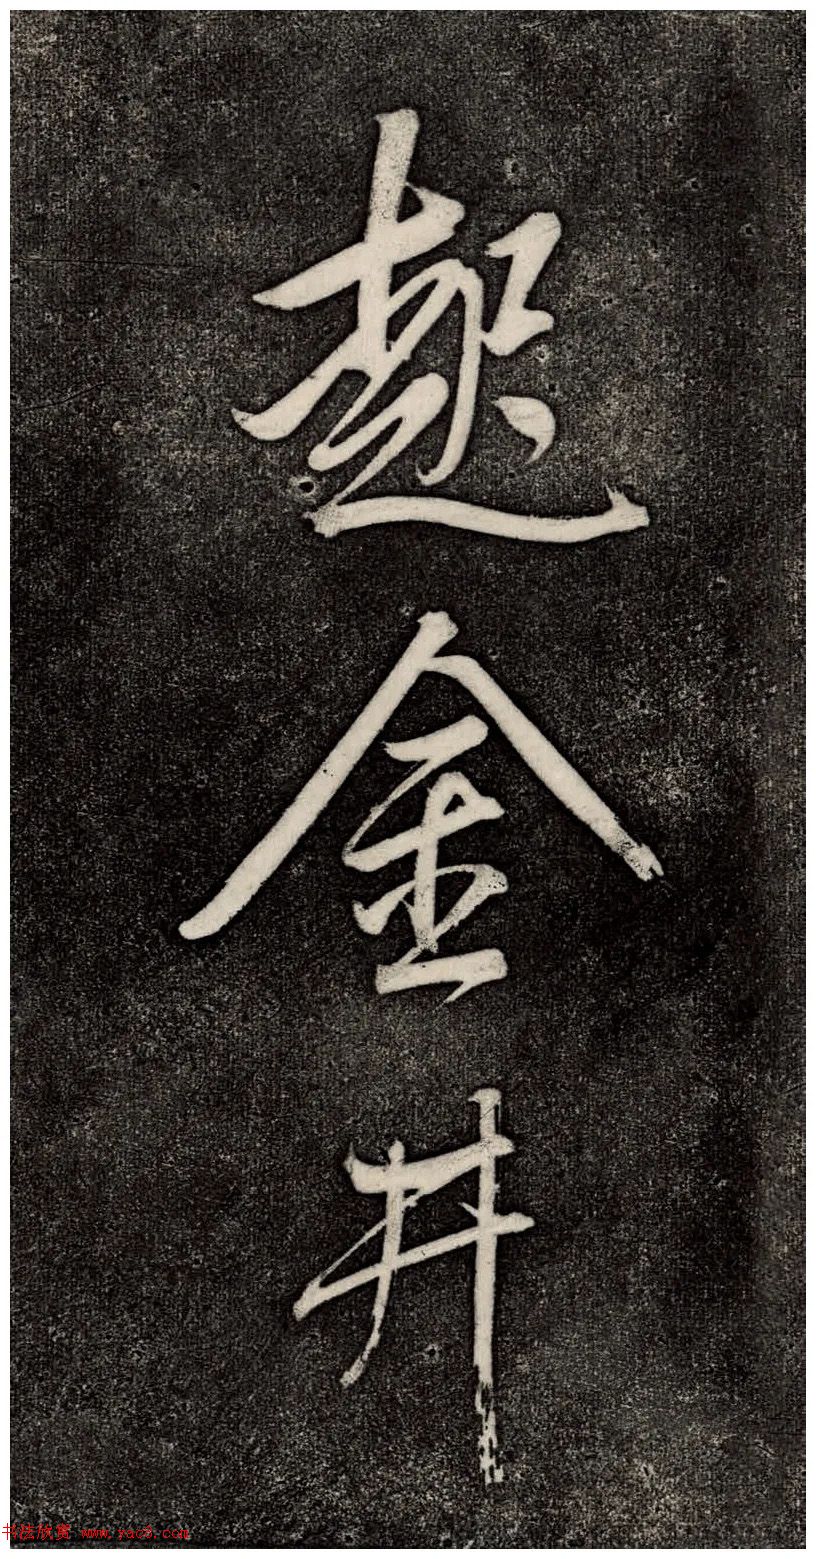 趣金井
书法欣赏 www.yac8.com